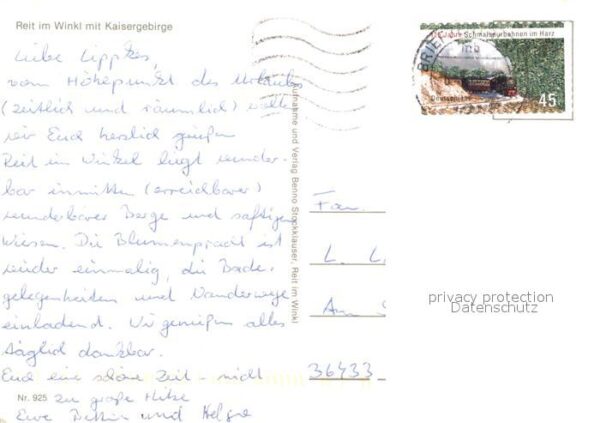 Reit im Winkl mit Kaisergebirge
Liebe Lippkes,
vom Höhepunkt des Urlaubs
(zeitlich und räumlich) wollen
wir Euch herzlich grüßen
Reit im Winkel liegt wunder-
bar inmitten (erreichbarer)
wunderbarer Berge und saftigen
Wiesen. Die Blumenpracht ist
wieder einmalig, die Bade-
gelegenheiten und Wanderwege
einladend. Wir genießen alles
täglich dankbar.
Euch eine schöne Zeit - nicht
zu große Hitze
Eure und Helga
Nr. 925
Aufnahme und Verlag Benno Stockklauser, Reit im Winkl
125 Jahre Schmalspurbahnen im Harz
Deutschland
45
BRIEF
Fam.
L. L
Am
36433
privacy protection
Datenschutz